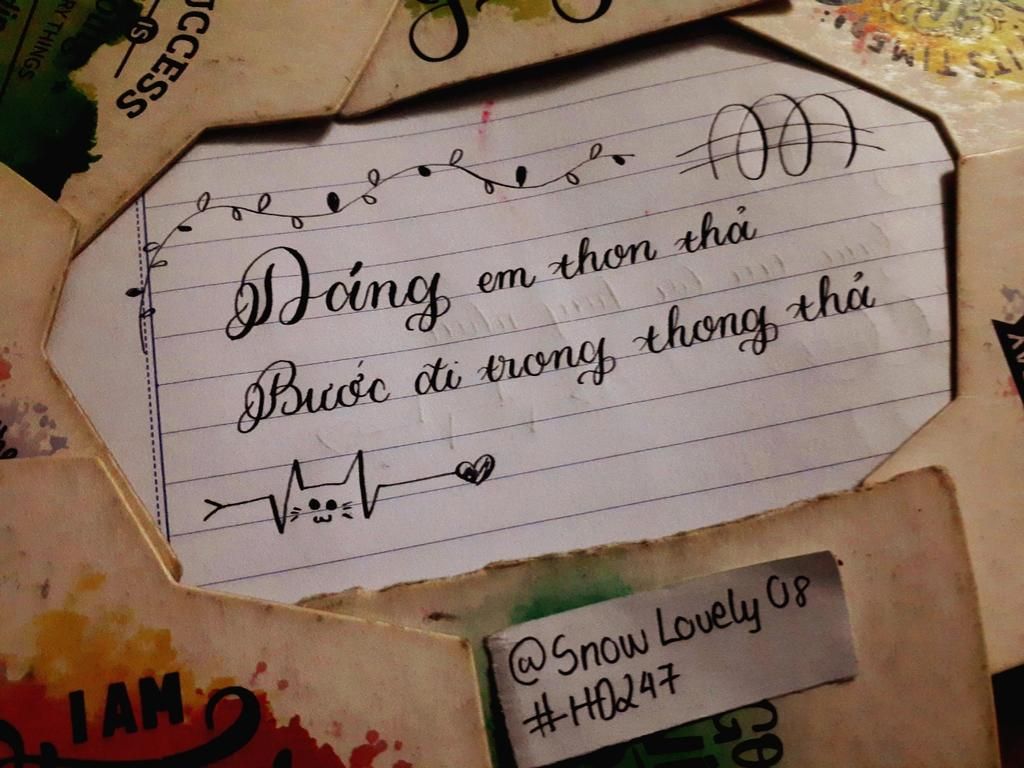 UCCESS
TS
RYTHINGS
ITS TIME
Dáng em thon thả
Bước đi trong thong thả
@Snow Lovely 08
#HD247
I AM